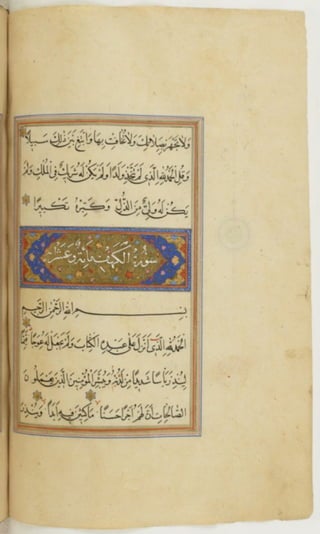 ولا تجهر بصلاتك ولا تخافت بها وابتغ بين ذلك سبيلا
وقل الحمد لله الذي لم يتخذ ولدا ولم يكن له شريك في الملك ولم
يكن له ولي من الذل وكبره تكبيرا
سورة الكهف مائة وعشر
بسم الله الرحمن الرحيم
الحمد لله الذي انزل على عبده الكتاب ولم يجعل له عوجا قيما
لينذر باسا شديدا من لدنه ويبشر المؤمنين الذين يعملون
الصالحات ان لهم اجرا حسنا ماكثين فيه ابدا وينذر